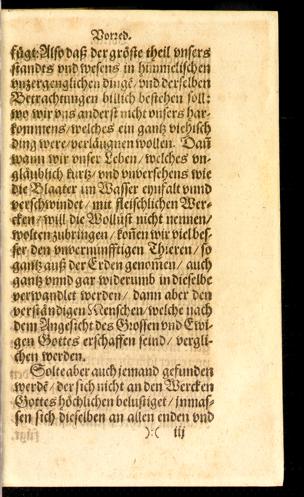 Vorred.
sagt: Also daß der gröste theil vnsers
standts vnd wesens in himmelischen
vnzergenglichen dingē/ vnd derselben
Betrachtungen billich bestehen soll:
wo wir vns anderst nicht vnsers har-
kommens/ welches ein gantz viehisch
ding were/ verläugnen wollen. Dañ
wann wir vnser Leben/ welches vn-
gläublich kurtz/ vnd vnversehens wie
die Blaater im Wasser eynfalt vnnd
verschwindet/ mit fleischlichen Wer-
cken/ will die Wollust nicht nennen/
wolten zubringen/ koñen wir viel bes-
ser den vnvernunfftigen Thieren/ so
gantz auß der Erden genom̃en/ auch
gantz vnnd gar widerumb in dieselbe
verwandlet werden/ dann aber den
verständigen Menschen/ welche nach
dem Angesicht des Grossen vnd Ewi-
gen Gottes erschaffen seind/ vergli-
chen werden.
Solte aber auch jemand gefunden
werdē/ der sich nicht an den Wercken
Gottes höchlichen belustiget/ inmas-
sen sich dieselben an allen enden vnd
):( iij